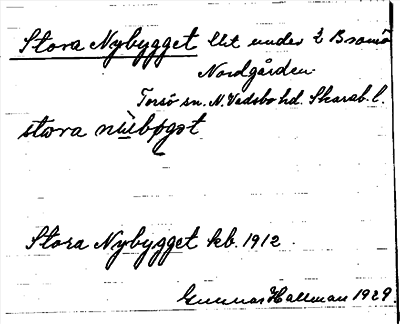 Stora Nybygget lht under 2 Bromö
Nordgården
Torsö sn. N. Vadsbo hd. Skarab. l.
stora nùbøgət
Stora Nybygget kb. 1912.
Gunnar Hallman 1929.